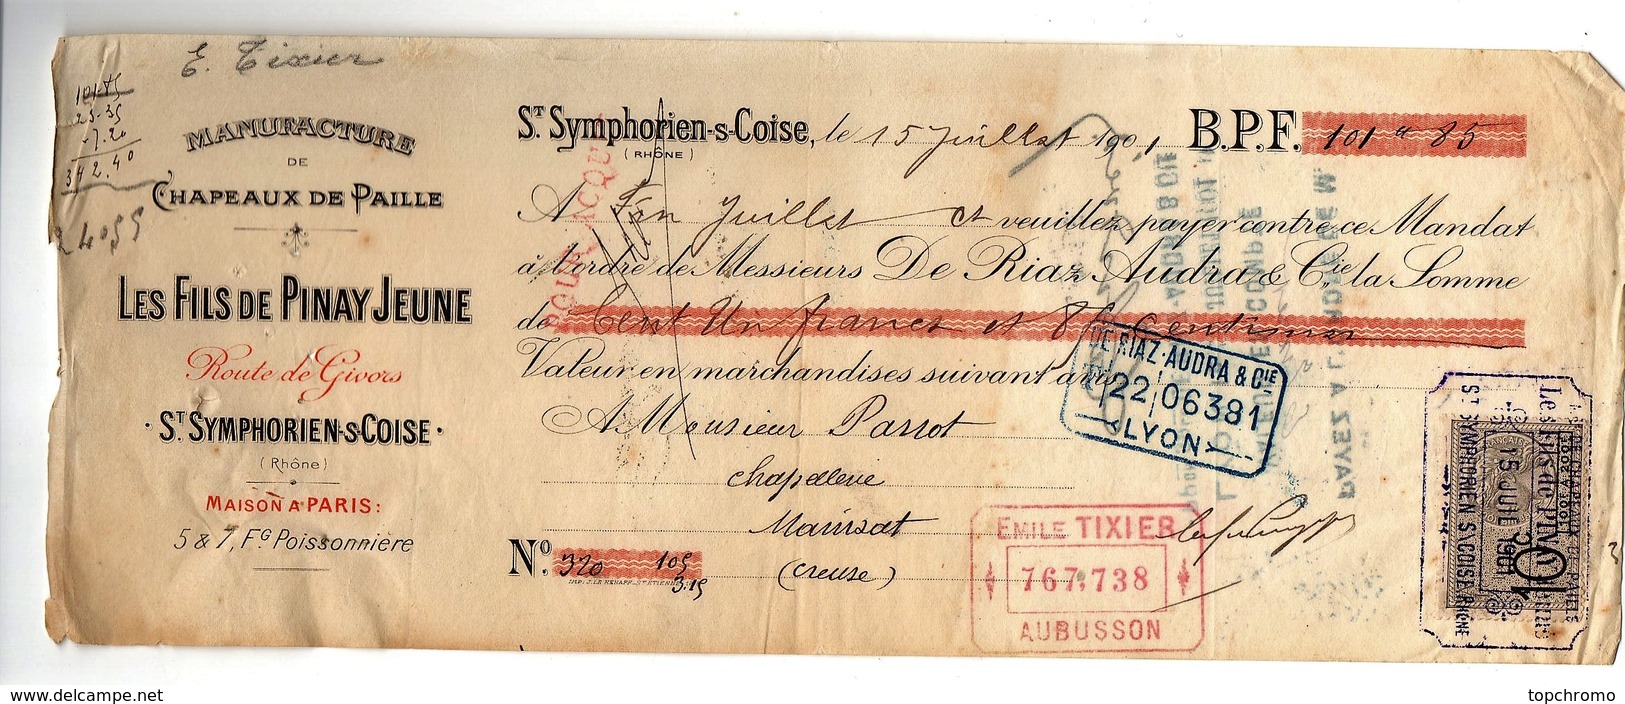 E. Tixier
101.85
23.35
342.40
24055
MANUFACTURE
DE
CHAPEAUX DE PAILLE
LES FILS DE PINAY JEUNE
Route de Givors
· ST SYMPHORIEN-S-COISE ·
(Rhône)
MAISON A PARIS:
5 & 7, FG Poissonnière
ST Symphorien-s-Coise, le 15 Juillet 1901 B.P.F. 101 85
(RHÔNE)
A Fin Juillet et veuillez payer contre ce Mandat
à l'ordre de Messieurs De Riaz, Audra & Cie la Somme
de Cent Un francs et 85 Centimes
Valeur en marchandises suivant avis
A Monsieur Parrot
Chapellerie
Mainsat
(Creuse)
No 320 105
3.15
POUR ACQUIT
DE RIAZ. AUDRA & CIE
22 06381
LYON
EMILE TIXIER
767,738
AUBUSSON
PAYEZ A L'ORDRE DE M.
Les Fils de PINAY
15 JUIL 1901
ST SYMPHORIEN S/ COISE RHÔNE
topchromo
www.delcampe.net